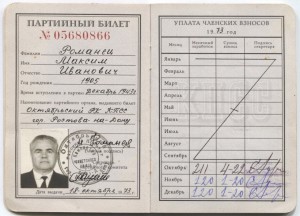 ПАРТИЙНЫЙ БИЛЕТ
№ 05680866
Фамилия Романец
Имя Максим
Отчество Иванович
Год рождения 1905
Время вступления в партию декабрь 1943г.
Наименование партийного органа, выдавшего билет
Октябрьский РК КПСС
гор. Ростова-на-Дону
М.П.
Дата выдачи 18 октября 73г.
УПЛАТА ЧЛЕНСКИХ ВЗНОСОВ
1973 год
Месяц
Месячный заработок
Сумма взноса
Подпись секретаря
Январь
Февраль
Март
Апрель
Май
Июнь
Июль
Август
Сентябрь
Октябрь 211 4-22
Ноябрь 120 1-20
Декабрь 120 1-20